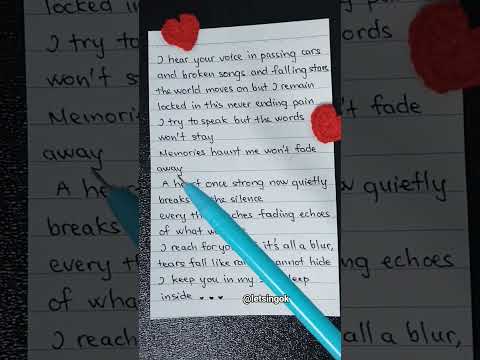 I hear your voice in passing cars
and broken songs and falling stars
the world moves on but I remain
locked in this never ending pain
I try to speak but the words
won't stay
Memories haunt me won't fade
away
A heart once strong now quietly
breaks the silence
every fading echoes
of what
I reach for you it's all a blur,
tears fall like cannot hide
I keep you in my deep
inside
@letsingok
locked in
I try to
won't st
Memories
away
A he
breaks
every th
of what
I reach
fade
quietly
echoes
all a blur,